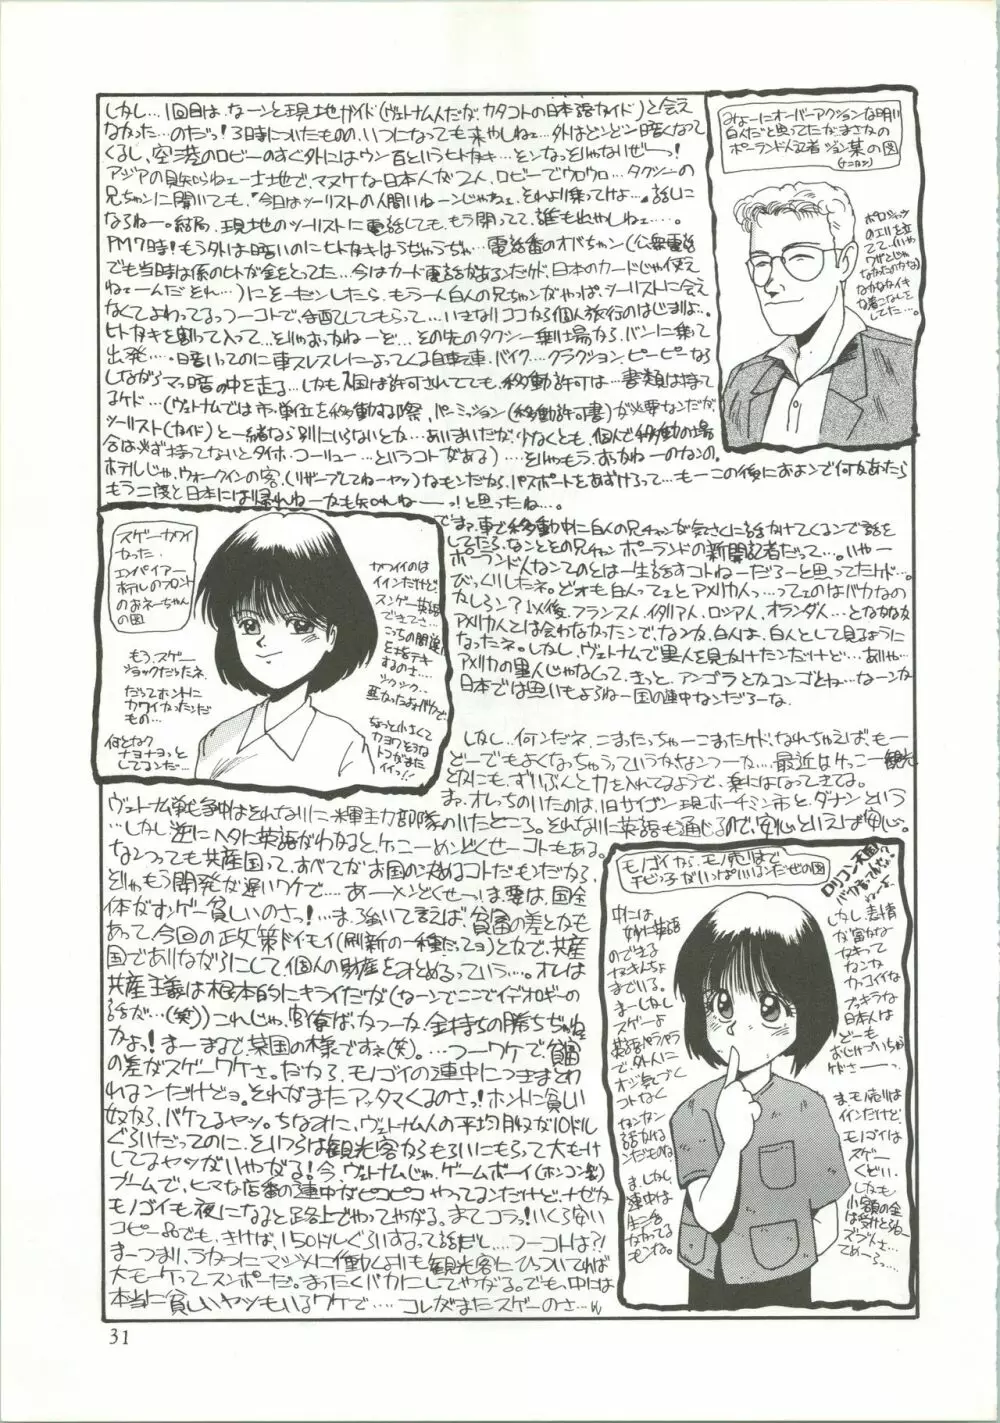 しかし…1回目は、なーンと現地ガイド(ヴェトナム人だが、カタコトの日本語ガイド)と会え
なかった…のだっ！3時についたものの、いつになっても来やしねェ…外はどンどン暗くなって
くるし、空港のロビーのすぐ外にはウン百というヒトガキ…そンなっそじゃないぜーっ！
アジアの見知らねェー土地で、マヌケな日本人が2人、ロビーでウロウロ…タクシーの
兄ちゃンに聞いても、「今日はツーリストの人間いねーンじゃねェ、それより乗ってけよ…。」話しに
ならねー。結局、現地のツーリストに電話しても、もう閉ってて、誰も出やしねェ…。
PM7時！もう外は暗いのにヒトガキはうぢゃうぢゃ…電話番のオバちゃン(公衆電話
でも当時は係のヒトが金をとってた…今はカード電話があるンだケド、日本のカードじゃ使え
ねェーんだ それ…)に
なくてよわってるっつーコトで、
ヒトガキを割って入って…
出発…。暗いってのに車スレスレによってくる自転車・バイク…クラクション、ピーピーなら
しながらマっ暗の中を走る…しかも入国は許可されてても、移動許可は…書類は持って
るケド…(ヴェトナムでは市単位を移動する際、パーミッション(移動許可書)が必要なンだが、
ツーリスト(ガイド)と一緒なら別にいらないとか…あいまいだが、少なくとも、個人で移動の場
合は必ず持ってないとタイホ・コーリュー…というコトがある)…
ホテルじゃ、ウォークインの客、(リザーブしてねーヤツ)なもンだから、パスポートをあずけろって…もーこの後におよンで何かあったら
もう二度と日本には帰れねーかも知れねーーっ！と思ったね…。
でまァ、車で移動中に白人の兄チャンが気さくに話かけてくるンで話を
してたら、なンとその兄チャン ポーランドの新聞記者だって…。いやー
ポーランド人なンてのとは一生話すコトねーだろーと思ってたケド…。
びっくりしたネ。どォも白人ってェとアメリカ人っ…ってェのはバカなの
かしらン？以後、フランス人、イタリア人、ロシア人、オランダ人…となかなか
アメリカ人とは会わなかったンで、なンか、白人は、白人として見るように
なったネ。しかし、ヴェトナムで黒人を見かけたンだけど…ありゃ…
アメリカの黒人じゃなくして、きっと、アンゴラとかコンゴとね…なーンか
日本では思いもよらねー国の連中なンだろーな。
しかし…何ンだネ、こまったっちゃーこまったケド、なれちゃえば、もー
どーでもよくなっちゃうっていうかなンつーか…最近はけっこー観光
とかにも、ずいぶんと力を入れてるようで、楽にはなってきてる。
まァ、オレっちのいたのは、旧サイゴン・現ホーチミン市と、ダナンという
ヴェトナム戦争中はそれなりに米軍主力部隊のいたところ。それなりに英語も通じるので、安心といえば安心。
…しかし逆にヘタに英語がわかると、けっこーめンどくせーコトもある。
なンつっても共産国って、すべてがお国の決めるコトだもンだから、
そりゃもう開発が遅いワケで…あーメンどくせーっ！ま、要は、国全
体がすンゲー貧しいのさっ！…ま、強いて言えば、貧富の差とかも
あって、今回の政策ドイモイ(刷新の一種だってョ)とかで、共産
国でありながらにして、個人の財産をまとめるっていう…。オレは
共産主義は根本的にキライだが(なーンでここでイデオロギーの
話が…(笑))これじゃ、官僚ば、かつーか、金持ちの勝ちぢゃねェ
かよっ！まーまるで、某国の様ですネ(笑)。…つーワケで、貧富
の差がスゲーワケさ。だから、モノゴイの連中につきまとわ
れるンだけどョ。それがまたアッタマくるのさっ！ホントに貧しい
奴から、バケてるヤツ。ちなみに、ヴェトナム人の平均月収が10ドル
ぐらいだってのに、そいつらは観光客からもらいにもらって大もうけ
してるヤツがいやがる！今、ヴェトナムじゃ、ゲームボーイ(ホンコン製)
ブームで、ヒマな店番の連中がピコピコやってるンだけど、ナゼか
モノゴイも夜になると路上でやってやがる。まてコラっ！いくら安い
コピー品でも、きけば、150ドルぐらいするって話だし…つーコトは？！
まーつまり、うかつにマジメに働くよりも観光客にひっついてれば
大モーケってスンポーだ。まったくバカにしてやがる。でも、中には
本当に貧しいヤツもいるワケで…コレがまたスゲーのさ…
みょーにオーバーアクションな明い
白人だと思ってたが、まさかの
ポーランド人記者 ジョン某の図
ポロシャツ
のエリを立
てて…(いや
ワザとじゃ
なかったのかな)
なかなかイキ
な着こなしを
してた…。
スゲーカワイ
かった・
エンパイアー
ホテルのフロント
のおネーちゃん
の図
もう、スゲー
ショックだったネ。
だってホントに
カワイかったンだ
もの…
何となく
ナヨナヨっと
してるンだ…
カワイイのは
イインだけど、
スンゲー英語
できてさ…
こっちの間違い
を指テキ
するのョ…
シクシク…
悪かったなバカで。
ちょっと小さくて
カヨワそうな
トコがまた
イイっ！！
モノゴイから、モノ売りまで
チビっ子がいっぱいいるンだぜの図
ロリコン天国？
中には
妙に英語
のできる
ガキンちょ
までいる。
まーしかし
スゲーよ
英語ペラペラ
で、外人に
オジ気づく
コトなく
ガンガン
話かけね
ンだものね。
まーしかし
連中は
生活
かかってる
モンね。
しかし、表情
が富かな
ガキって
なンか
カッコイイな
ブッキラな
日本人は
どーも
おじけづいちゃう
ケドさー…
ま、モノ売りは
イインだけど、
モノゴイは
スゲー
くどい。
しかも
小額の金
は受けとらね
ズブとさ…
てめーら…。
31